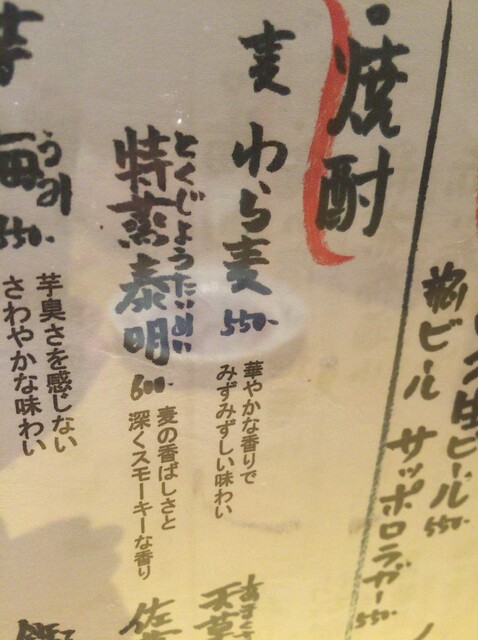 生ビール 550-
瓶ビール サッポロラガー 550-
・焼酎
麦 わら麦 550-
華やかな香りで
みずみずしい味わい
天草
とくじょうたいめい
特蒸泰明 600-
麦の香ばしさと
深くスモーキーな香り
芋 海 550-
うみ
芋臭さを感じない
さわやかな味わい